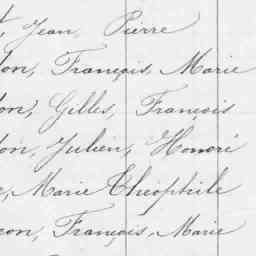 Jean, Pierre
François, Marie
Gilles, François
Julien, Honoré
Marie Théophile
François, Marie